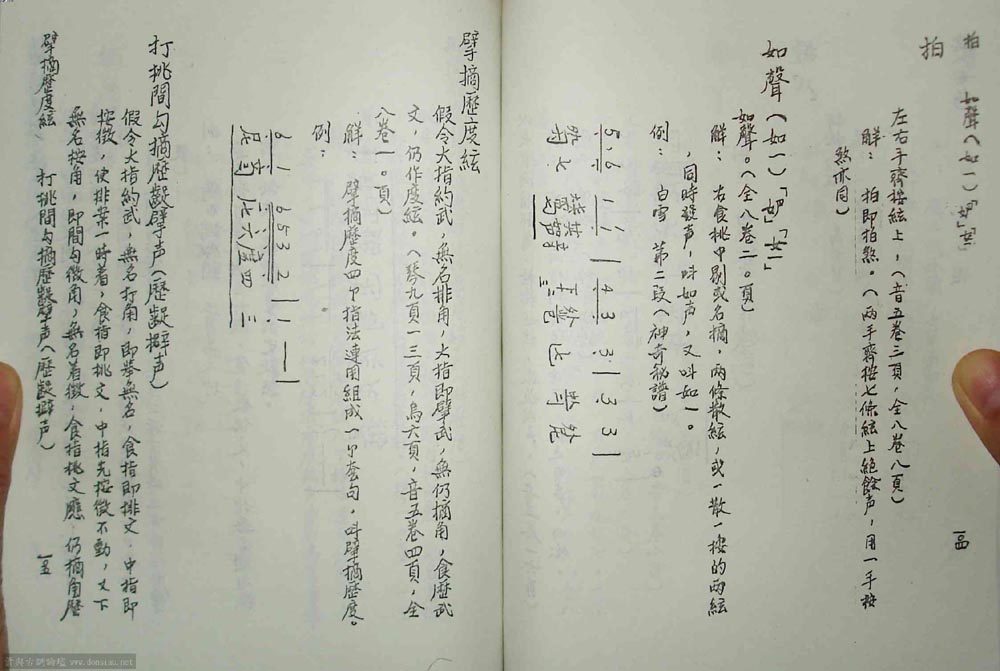 拍 如聲(如一)「如」「女一」
拍
左右手齊按絃上,(音五卷三頁,全八卷八頁)
解: 拍即拍煞。(兩手齊按七條絃上絕餘声,用一手按
煞亦同)
如聲(如一)「如」「女一」
如聲。(全八卷二○頁)
解: 右食挑中剔或名摘,兩條散絃,或一散一按的兩絃
,同時發声,叫如声,又叫如一。
例: 白雪 第二段(神奇秘譜)
5·6 1 1 | 4 3 3 | 3 3 |
一四
擘摘歷度絃
假令大指約武,無名排角,大指即擘武,無仍摘角,食歷武
文,仍作度絃。(琴九頁一三頁,烏六頁,音五卷四頁,全
八卷一○頁)
解: 擘摘歷度四个指法連用組成一个套句,叫擘摘歷度。
例:
6 1 6532 | 1 — |
打挑間勾摘歷齪擘声(歷齪擗声)
假令大指約武,無名打角,即舉無名,食指即排文.中指即
按徵,使排業一時着,食指即挑文,中指先按徵不動,又下
無名按角,即間勾徵角,無名着徵,食指挑文應.仍摘角歷
擘摘歷度絃 打挑間勾摘歷齪擘声(歷齪擗声)
一五
爱与古词论坛 www.donsau.net